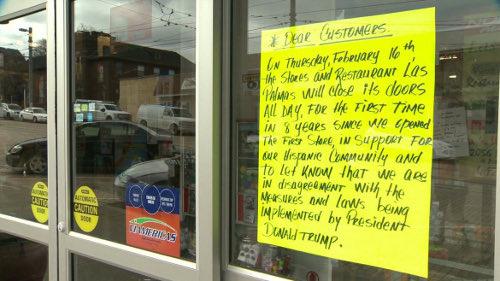 * DEAR CUSTOMERS.
ON THURSDAY, FEBRUARY 16th,
the STORES AND RESTAURANT LAS
PALMAS WILL CLOSE ITS DOORS
ALL DAY, FOR THE FIRST TIME
IN 8 YEARS SINCE WE OPENED
THE FIRST STORE, IN SUPPORT FOR
OUR HISPANIC COMMUNITY AND
to LET KNOW THAT WE ARE
IN DISAGREEMENT WITH THE
MEASURES AND LAWS BEING
IMPLEMENTED BY PRESIDENT
DONALD TRUMP.
AUTOMATIC
CAUTION
DOOR
AUTOMATIC
CAUTION
DOOR
VIAMERICAS